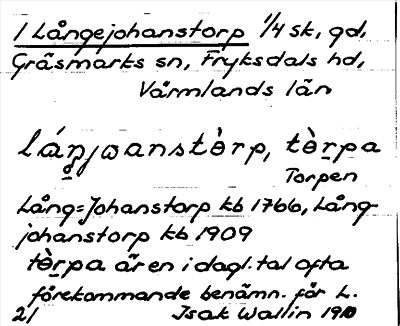 1 Långejohanstorp 1/4 sk, gd,
Gräsmarks sn, Fryksdals hd,
Värmlands län
lá̊ŋjωanstè̱rp, tè̱rpa
Torpen
Lång=Johanstorp kb 1766, Lång-
johanstorp kb 1909
tè̱rpa är en i dagl. tal ofta
förekommande benämn. för L.
2/ Isak Wallin 1910